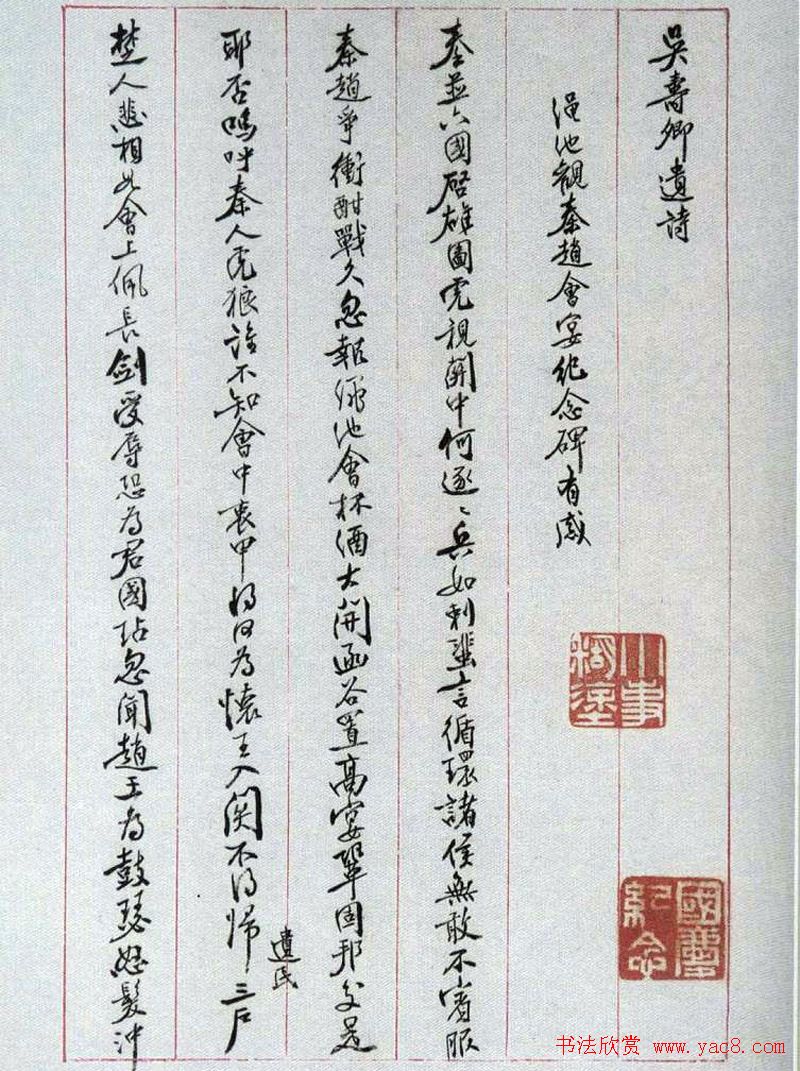 吳壽卿遺詩
渑池觀秦趙會宴紀念碑有感
秦並六國啓雄圖虎視關中何逐〻兵如剌蜚言循環諸侯無敢不賓服
秦趙爭衡酣戰久忽報渑池會杯酒大開函谷置高宴鞏固邦交是
耶否嗚呼秦人虎狼誰不知會中衷甲将何為懷王入関不得歸三户
遺民
楚人悲相如會上佩長劍受辱恐為君國玷忽聞趙王為鼓瑟怒髮沖
小事糊塗
國慶紀念
书法欣赏 www.yac8.com